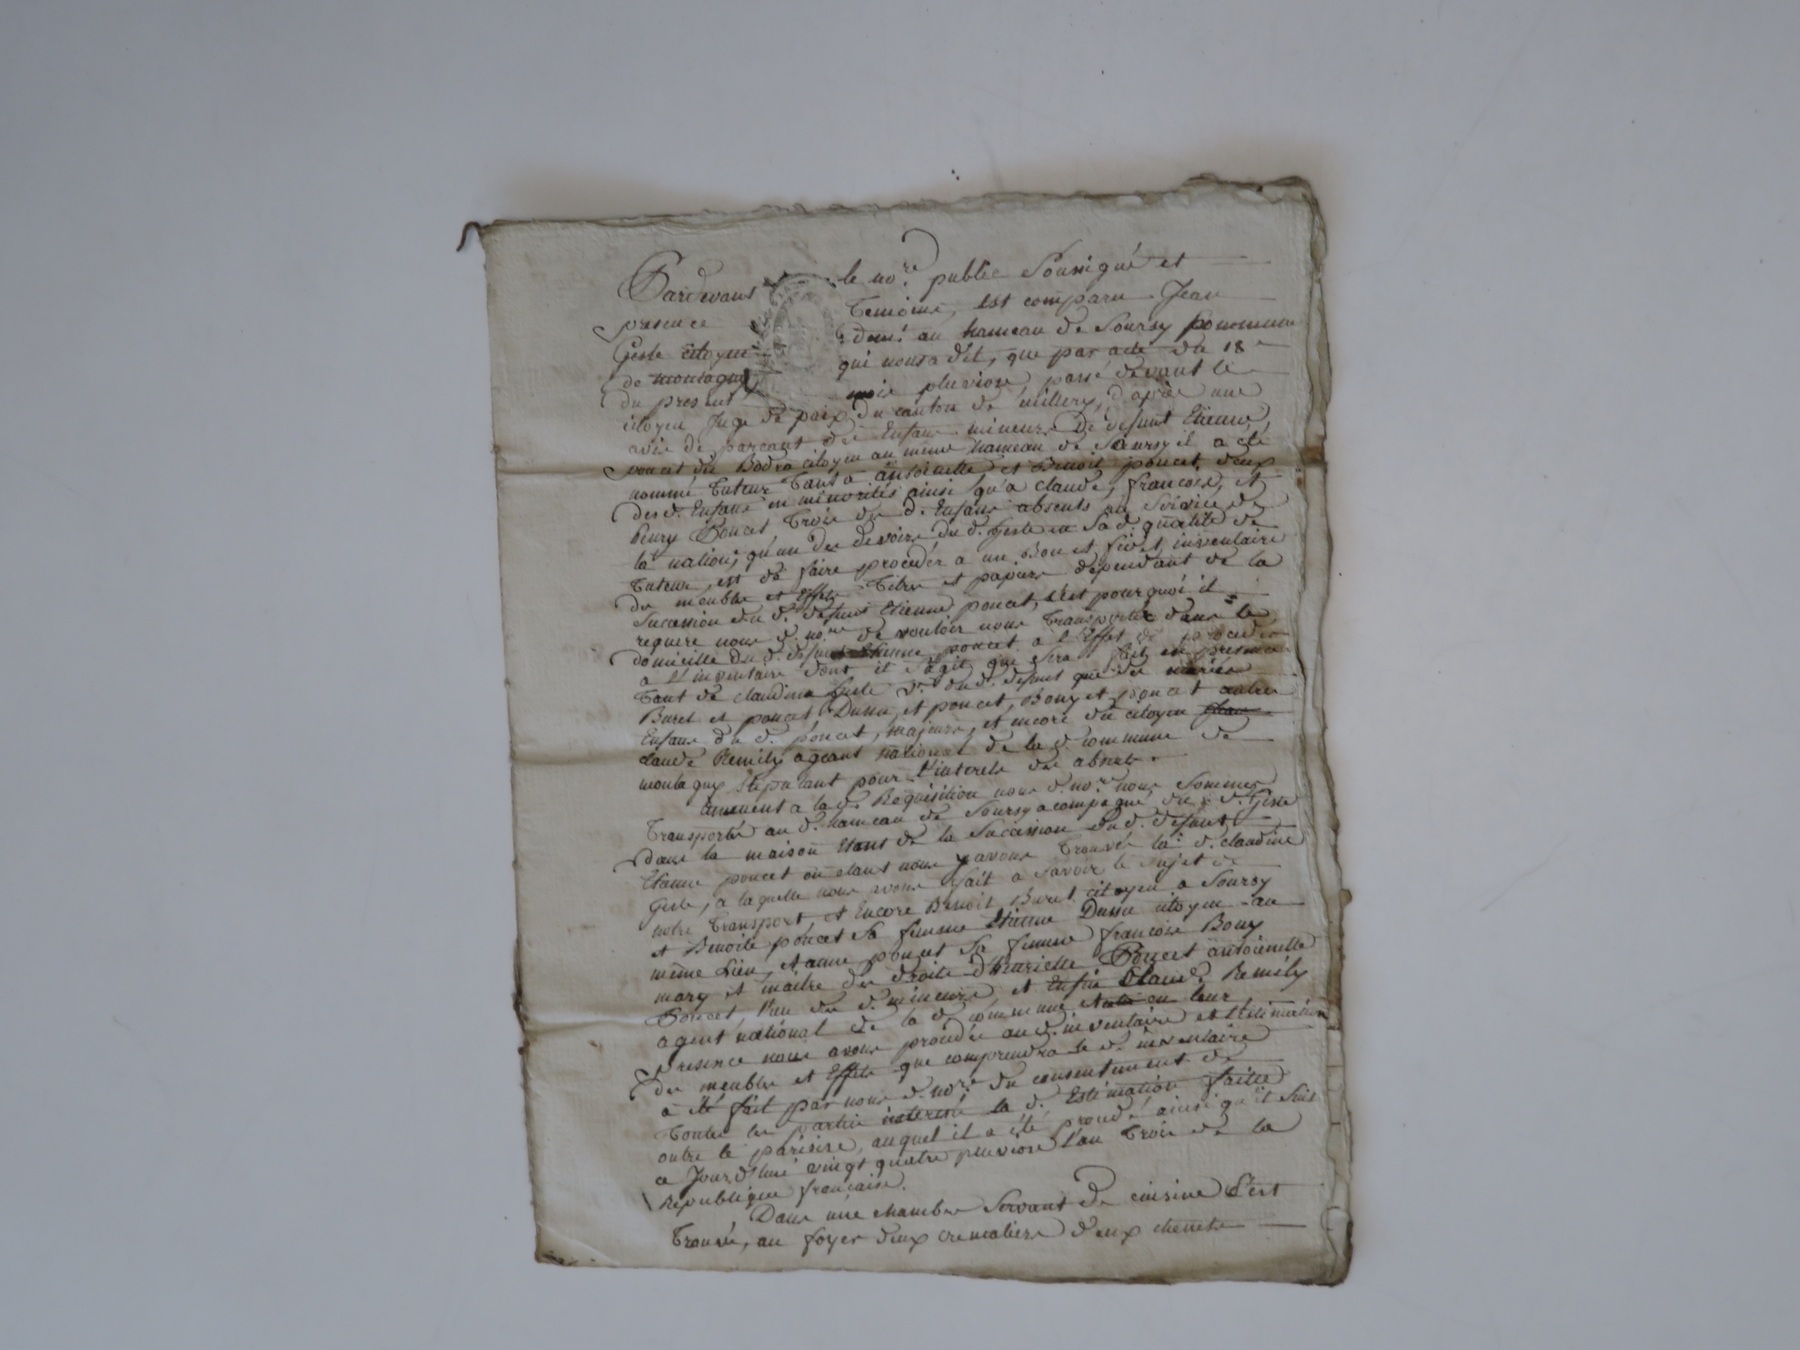 Pardevant le no.re public Soussigné et
presence Temoins, est comparu Jean
Geste citoyen dem.t au hameau de Soursy
de montagny qui nous a dit, que par acte du 18e
du present mois pluviose passé devant le
citoyen Juge de paix du canton de millery, d'après une
avis de parents des Enfans mineurs De defunt Etienne
poncet dit Bodra citoyen au meme hameau de Soursy il a eté
nommé Tuteur Tant a antoinette et Benoit poncet, deux
des d. Enfans en minorités ainsi qu'a claude, francois, et
henry Poncet Trois des d. Enfans absents au Service de
la nation, qu'un des devoirs du d. Geste en Sa d. qualité de
Tuteur, est de faire proceder a un Bon et fidel inventaire
des meubles et Effets Titres et papiers dependant de la
Succession du d. defunt Etienne poncet, c'est pourquoi il
requiere nous d. no.re de vouloir nous Transporter dans le
domicille du d. defunt Etienne poncet a l'Effet de proceder
a l'inventaire dont il S'agit, que sera fait en presence
Tant de claudine Geste v.e du d. defunt que des mariés
Buret et poncet Dussu, et poncet, Bony et poncet autres
Enfans du d. poncet, majeurs, et encore du citoyen
claude Remily agent national de la d. commune de
montagny Stipulant pour l'interets des absents.
a la d. Requisition nous d. no.re nous Sommes
Transporté au d. hameau de Soursy acompagné du d. Geste
dans la maison Etant de la Succession du d. defunt
Etienne poncet ou etant nous y avons Trouvé la d. claudine
Geste, a laquelle nous avons fait a Savoir le Sujet de
notre Transport et Encore Benoit Buret citoyen a Soursy
et Benoite poncet Sa femme Etienne Dussu citoyen au
même Lieu, et anne poncet Sa femme francois Bony
mary et maitre des droits d'henriette Poncet antoinette
Poncet l'un des d. mineurs et Enfin Claude Remily
agent national de la d. commune et en leur
Presence nous avons procedé au d. inventaire et l'Estimation
des meubles et Effets que comprendra le d. inventaire
a été fait par nous d. no.re du consentement de
Toutes les parties interessé la d. Estimation faitte
outre le parisire, auquel il a été procedé ainsi qu'il Suit
a Jourd'hui vingt quatre pluviose l'an Trois de la
Republique francaise.
Dans une chambre Servant de cuisine S'est
Trouvé, au foyer deux cremaliere deux chenets